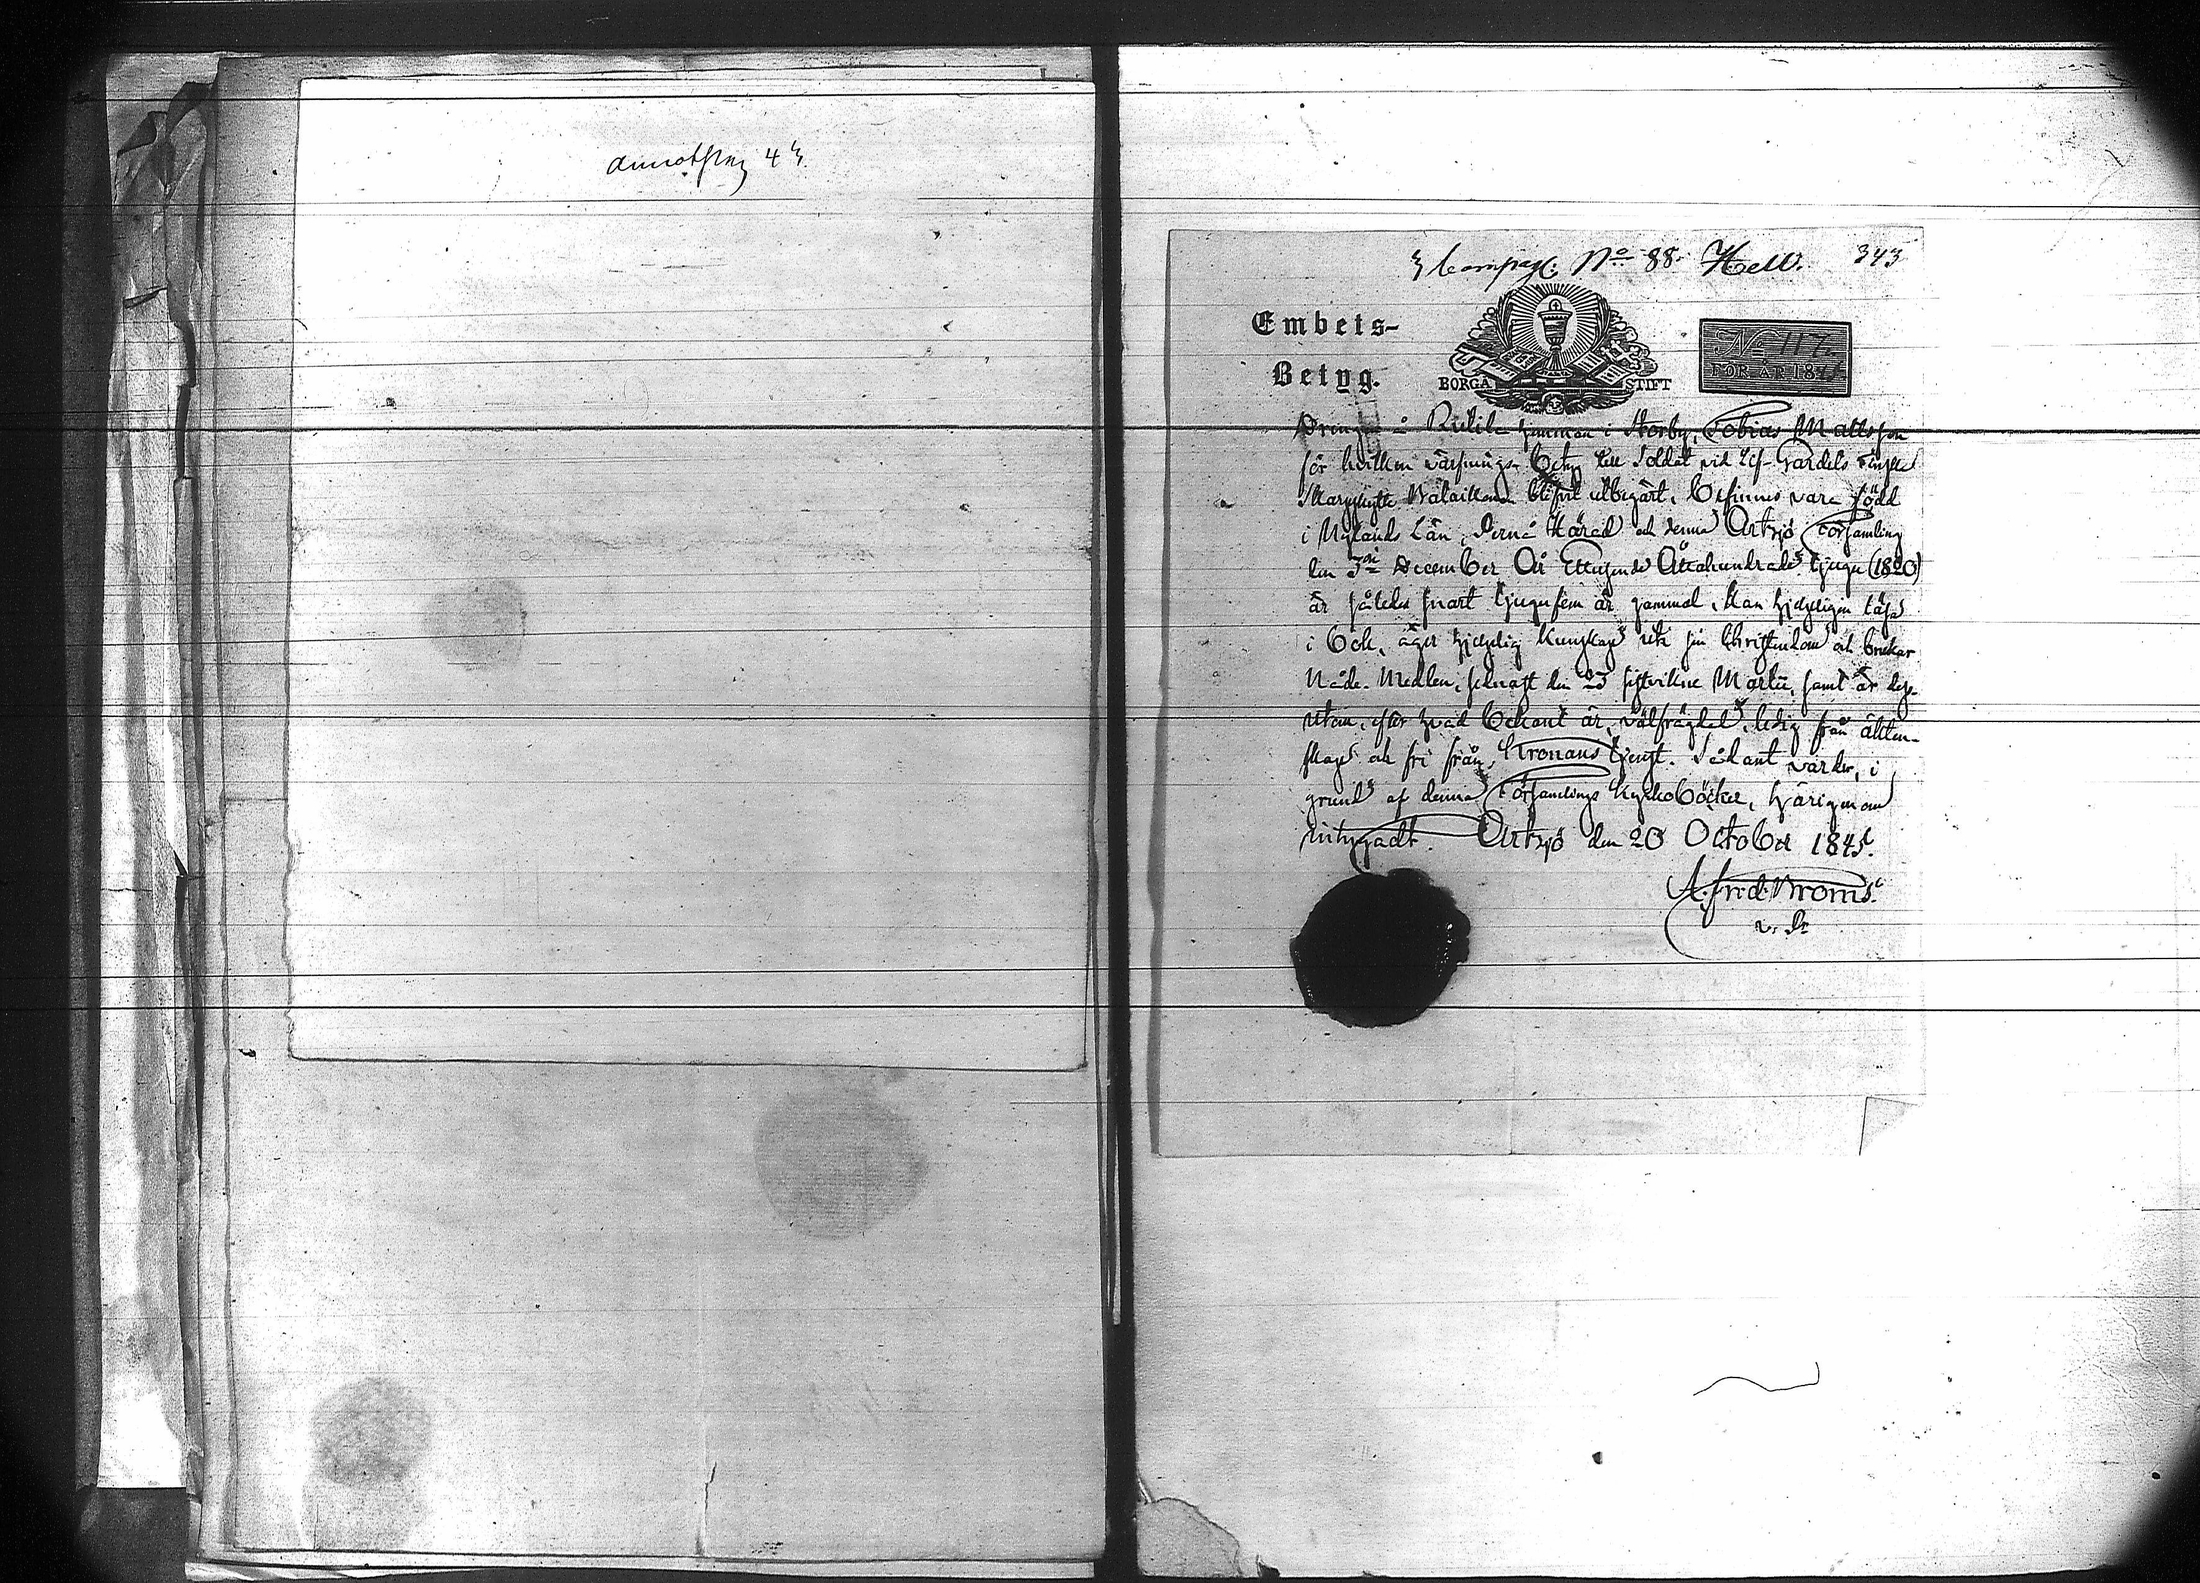 4
3 Compag: No 88. Hell. 343
Embets-
Betyg.
BORGÅ STIFT
No 117.
FÖR ÅR 1845
Drengen å hemman i Storby, Tobias Mattsson
för hvilken värfnings-Betyg till Soldat vid Lif-Gardets Finska
Skarpskytte Bataillon blifvit utbegärt, befinnes vara född
i Nylands Län, Pernå Härad och denna Artsjö Församling
den 3die December År Ettusende Åttahundrade tjugu (1820)
är således snart tjugufem år gammal, kan hjelpligen läsa
i bok, äger hjelplig kunskap uti sin Christendom och brukar
Nåde-Medlen, sednast den 23 sistvikne Martii, samt är dess-
utom, efter hvad bekant är, välfrägdad, ledig från äkten-
skap och fri från Kronans tjenst. Sådant varder, i
grund af denna Församlings Kyrkoböcker, härigenom
intygadt. Artsjö den 20 October 1845.
A. Fred. Broms.
v. P.